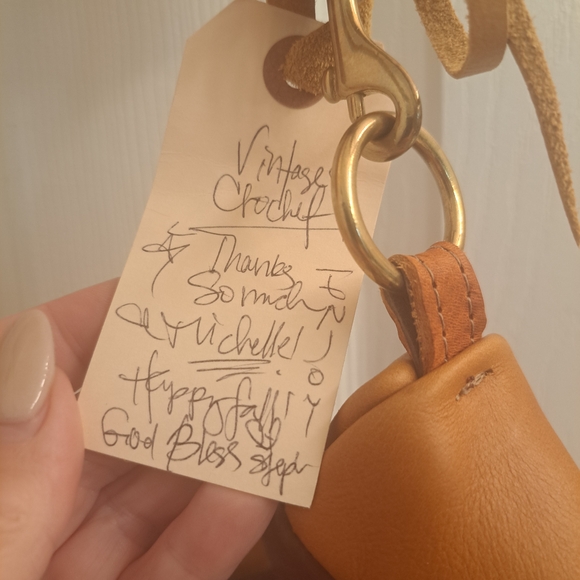 Vintage
Crochif
Thanks
So much
Michelle!
Happy fall!
God Bless
ENJOY